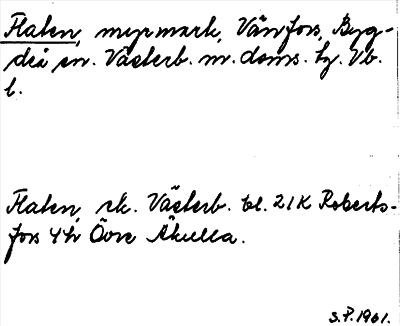 Flaten, myrmark, Vänfors, Byg-
deå sn. Västerb. m. doms. tg. Vb.
l.
Flaten, sk. Västerb. bl. 21K Roberts-
fors 4h Övre Åkulla.
S.P. 1961.